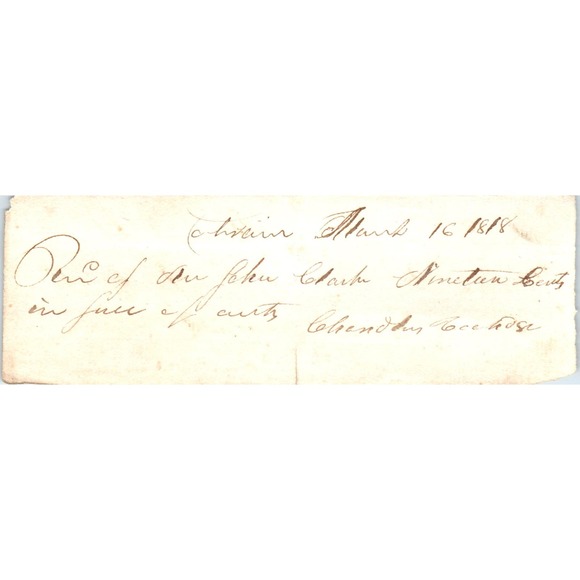 Colrain March 16 1818
Recd of Mr John Clark Nineteen Cents
in full of accts Chandler Coolidge